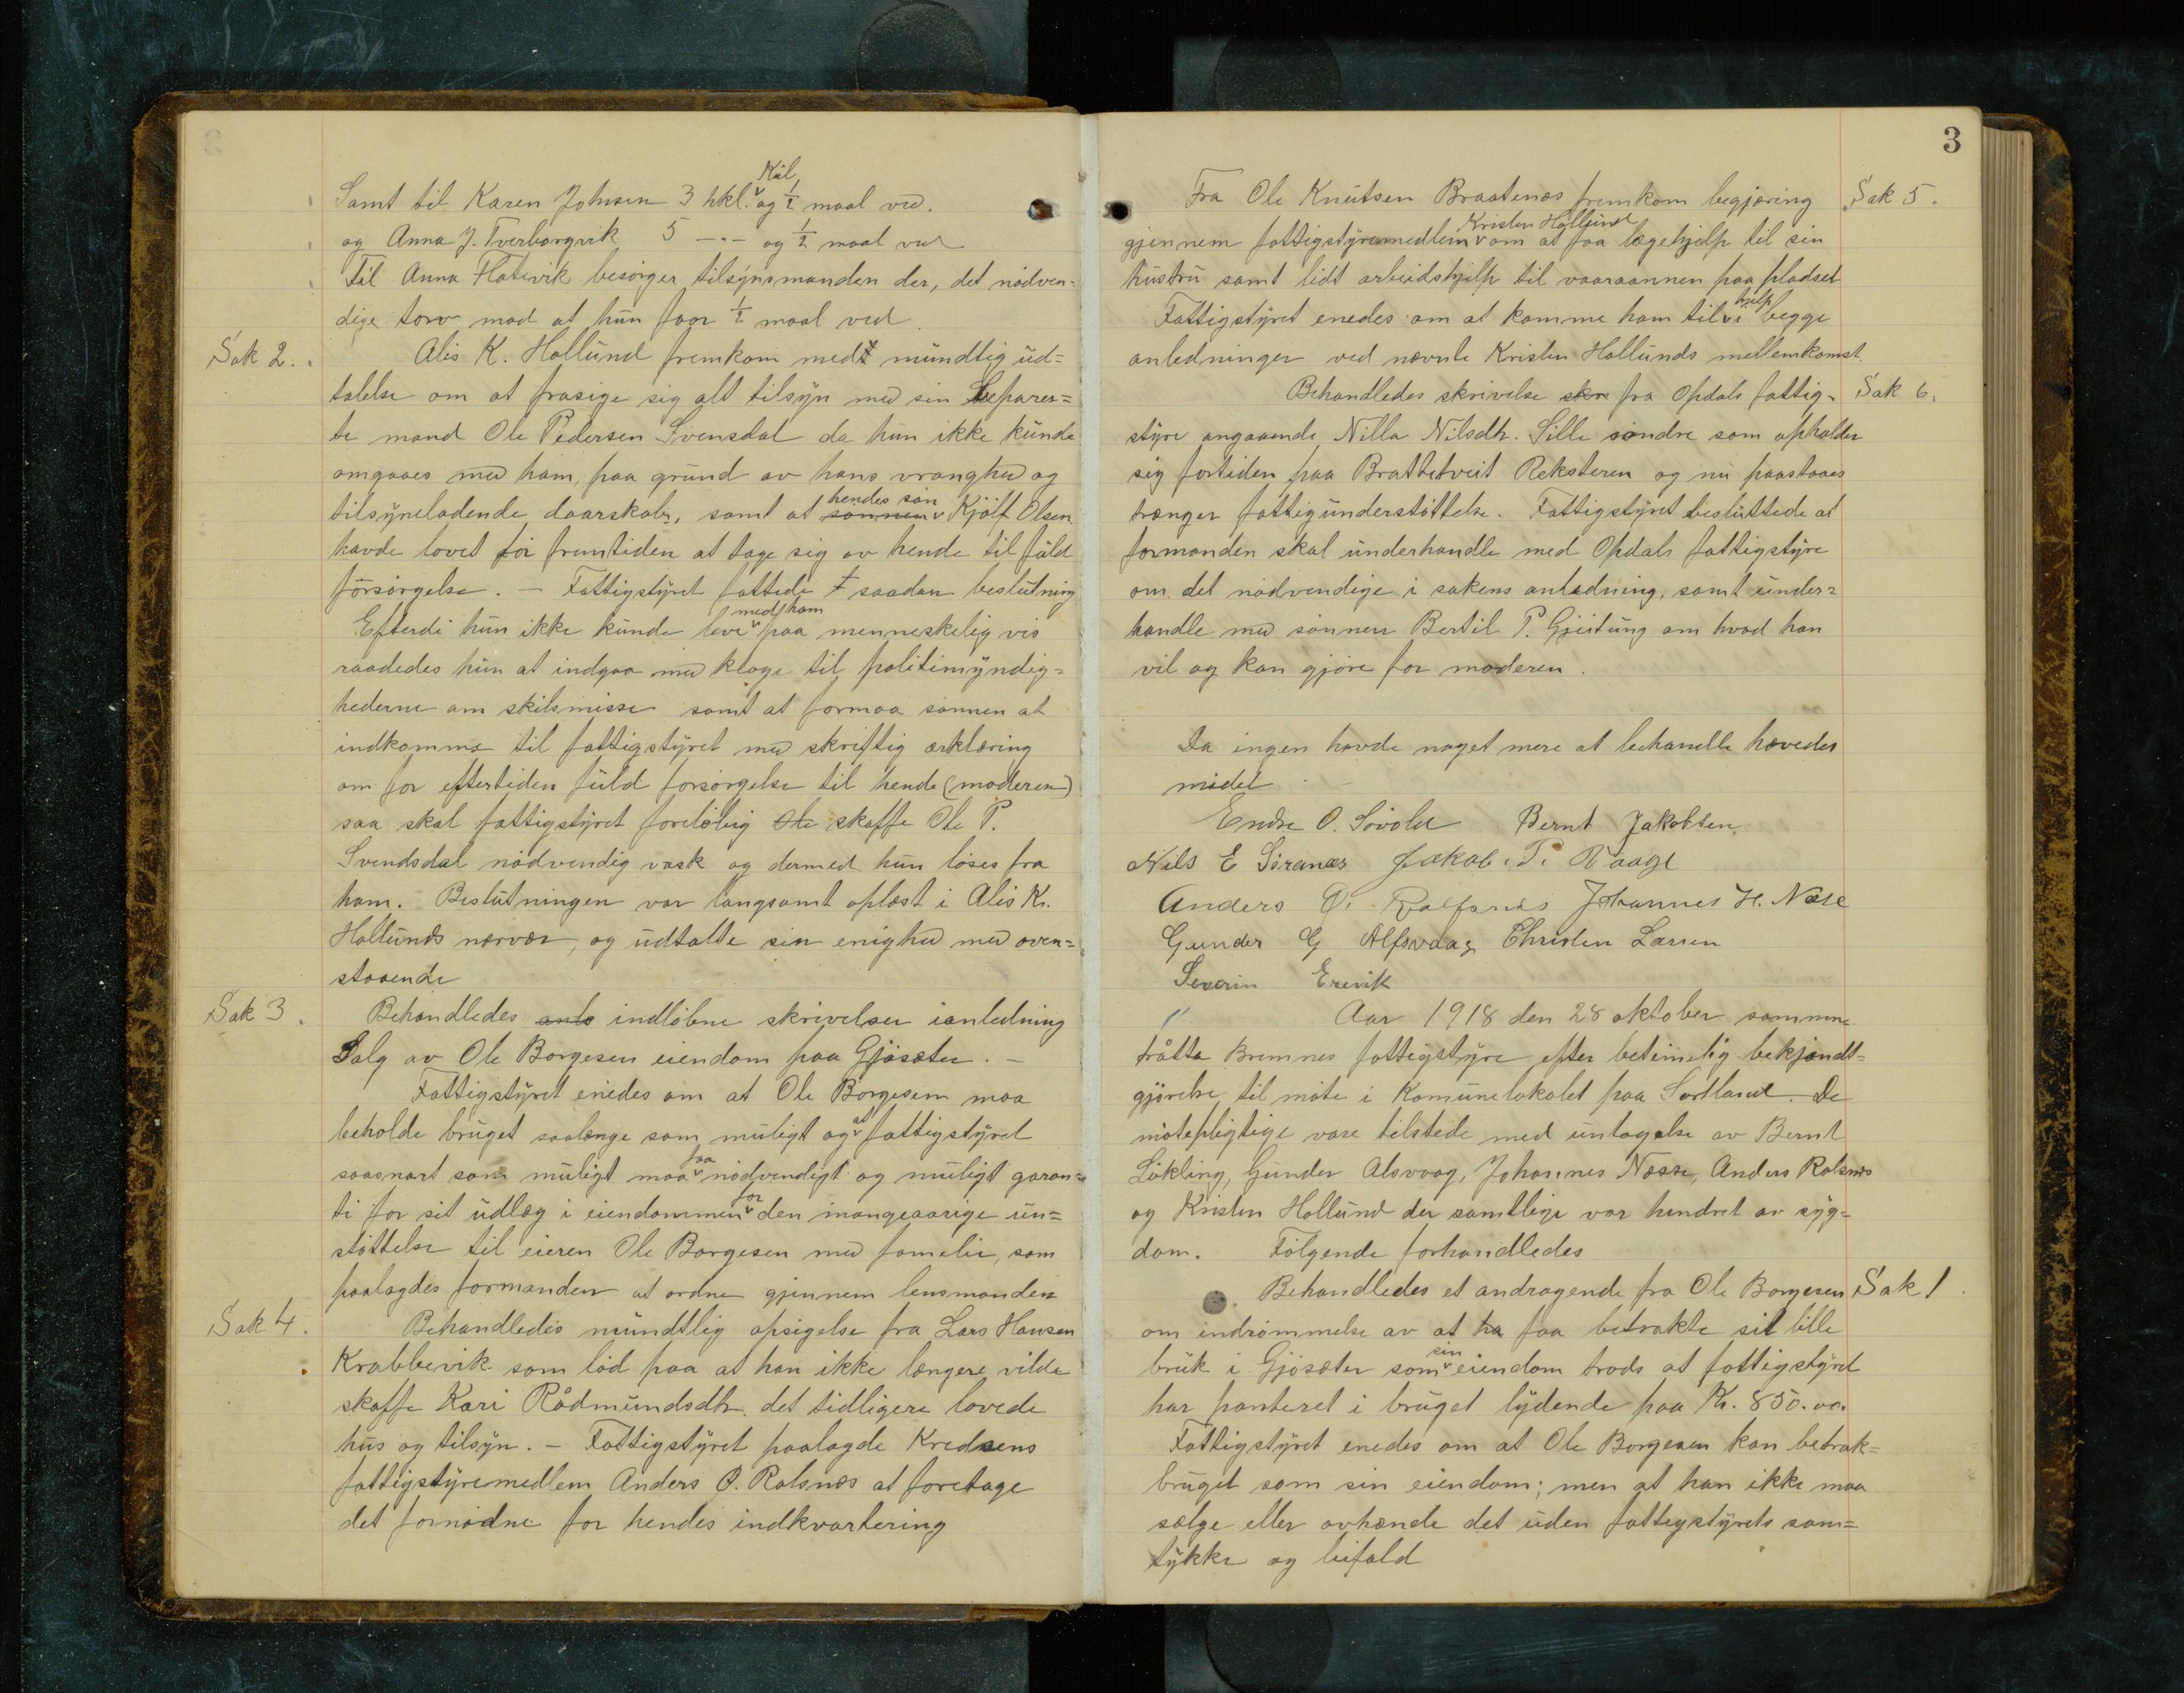 Samt til Karen Johnsen 3 hkl. Kul og ½ maal ved.
og Anna J. Tverborgvik 5 —"— og ½ maal ved
Til Anna Hatevik besörger tilsynsmanden der, det nödven-
dige torv mod at hun faar ½ maal ved.
Sak 2. Alis K. Hollund fremkom med mundtlig ud=
talelse om at frasige sig alt tilsyn med sin Separer=
te mand Ole Pedersen Svensdal da hun ikke kunde
omgaaes med ham, paa grund av hans vranghed og
tilsyneladende daarskab, samt at sönnen hendes sön Kjölf Olsen
havde lovet för fremtiden at tage sig av hende til fuld
försörgelse. — Fattigstyret fattede saadan beslutning
Efterdi hun ikke kunde leve med ham paa menneskelig vis
raadedes hun at indgaa med klage til politimyndig=
hederne om skilsmisse samt at formaa sönnen at
indkomme til fattigstyret med skriftlig erklæring
om for eftertiden fuld forsörgelse til hende (moderen)
saa skal fattigstyret forelöbig Ole skaffe Ole P.
Svendsdal nödvendig vask og dermed hun löses fra
ham. Beslutningen var langsomt oplæst i Alis K.
Hollunds nærvær, og udtalte sin enighed med oven=
staaende
Sak 3. Behandledes indlöbne skrivelser ianledning
Salg av Ole Borgesen eiendom paa Gjösæter. —
Fattigstyret enedes om at Ole Borgesen maa
beholde bruget saalænge som muligt og at fattigstyret
saasnart som muligt maa faa nödvendigt og muligt garan=
ti for sit udlæg i eiendommen for den mangeaarige un=
stöttelse til eieren Ole Borgesen med familie, som
paalagdes formanden at ordne gjennem lensmanden
Sak 4. Behandledes mundtlig opsigelse fra Lars Hansen
Krabbevik som löd paa at han ikke længere vilde
skaffe Kari Rådmundsdtr. det tidligere lovede
hus og tilsyn. — Fattigstyret paalagde Kredsens
fattigstyremedlem Anders O. Rolsnæs at foretage
det fornödne for hendes indkvartering
3
Fra Ole Knutsen Braatenæs fremkom begjæring Sak 5.
gjennem fattigstyremedlem Kristen Hollund om at faa lægehjelp til sin
hustru samt lidt arbeidshjelp til vaaraannen paa pladset
Fattigstyret enedes om at komme ham til hjelp i begge
anledninger ved nævnte Kristen Hollunds mellemkomst.
Behandledes skrivelse skr fra Opdals fattig- Sak 6.
styre angaaende Nilla Nilsdtr. Lille söndre som opholder
sig fortiden paa Brattetveit Reksteren og nu paastaaes
trænger fattigunderstöttelse. Fattigstyret besluttede at
formanden skal underhandle med Opdals fattigstyre
om det nödvendige i sakens anledning, samt under=
handle med sönnen Bertil P. Gjeitung om hvad han
vil og kan gjöre for moderen.
Da ingen havde noget mere at behandle hævedes
mödet
Endre O. Sövold Bernt Jakobsen
Nils E Siranæs Jakob. P. Vaage
Anders O. Rolfsnes Johannes H. Næse
Gunder G Alfsvaag Christen Larsen
Severin Ersvik
Aar 1918 den 28 oktober sammen=
tråtte Bremnes fattigstyre efter betimelig bekjendt=
gjörelse til möte i Komunelokalet paa Sortland. De
mötepligtige vare tilstede med untagelse av Bernt
Lökling, Gunder Alsvaag, Johannes Næsse, Anders Rolsnæs
og Kristen Hollund der samtlige var hindret av syg=
dom. Fölgende forhandledes
Behandledes et andragende fra Ole Borgesen Sak 1.
om indrömmelse av at ha faa betrakte sit lille
bruk i Gjösæter som sin eiendom trods at fattigstyret
har panteret i bruget lydende paa Kr. 850.00.
Fattigstyret enedes om at Ole Borgesen kan betrak=
bruget som sin eiendom; men at han ikke maa
sælge eller avhænde det uden fattigstyrets sam=
tykke og bifald